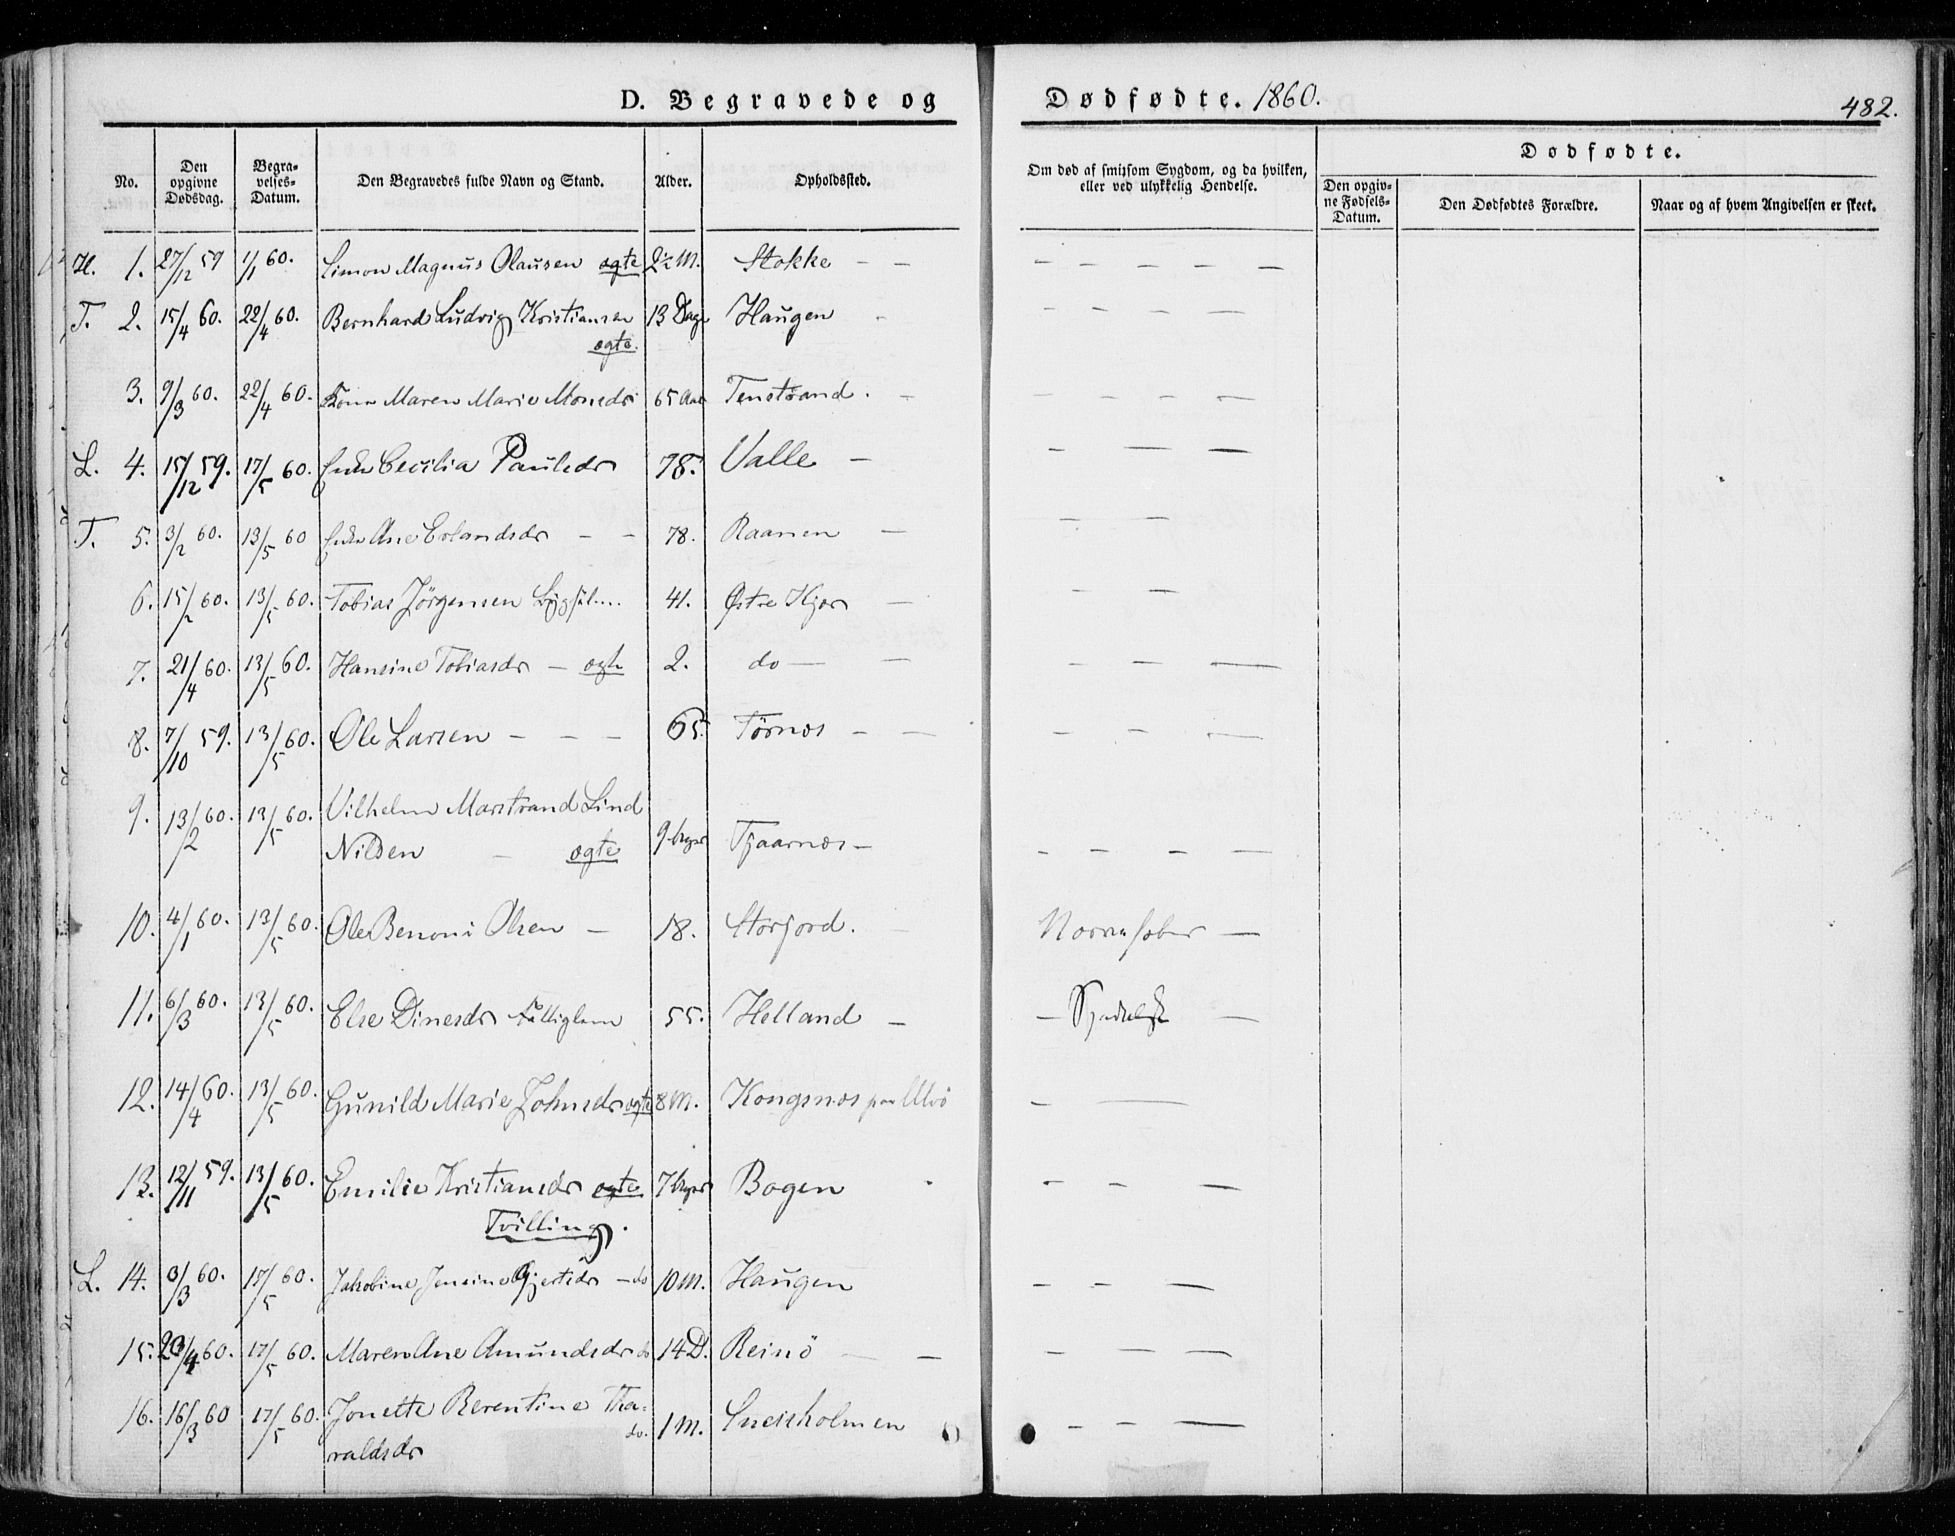 D. Begravede og Dødfødte. 1860.
482.
No.
Den opgivne Dødsdag.
Begravelses-Datum.
Den Begravedes fulde Navn og Stand.
Alder.
Opholdssted.
Om død af smitsom Sygdom, og da hvilken, eller ved ulykkelig Hendelse.
Dødfødte.
Den opgivne Fødsels-Datum.
Den Dødfødtes Forældre.
Naar og af hvem Angivelsen er skeet.
H. 1. 27/12 59 1/1 60. Simon Magnus Olausen ægte 2½ M. Stokke – – – – – – –
T. 2. 15/4 60. 22/4 60. Bernhard Ludvig Kristiansen 13 Dage Haugen – – – –
ægte.
3. 9/3 60. 22/4 60. Kone Maren Marie Monsdr 65 Aar Tenstrand. – – – – –
L. 4. 15/12 59. 17/5 60. Enke Cecilia Paulsdr 78. Valle – – – –
T. 5. 3/2 60. 13/5 60 Enke Ane Erlandsdr – – 78. Raanen – – –
6. 15/2 60. 13/5 60. Tobias Jörgensen 41. Østre Kjær – – –
7. 21/4 60. 13/5 60. Hansine Tobiasdr – ægte 2. do – – – – –
8. 7/10 59. 13/5 60. Ole Larsen – – – 65. Tørnæs – – – – –
9. 13/2 60. 13/5 60. Vilhelm Marstrand Lind
Nilsen – ægte 9 Uger Tjaarnæs – – – – –
10. 4/1 60. 13/5 60. Ole Benoni Olsen – 18. Storfjord. – Nervefeber –
11. 6/3 60. 13/5 60. Else Dinesdr Fattiglem 55. Helland – – Spedalsk –
12. 14/4 60. 13/5 60. Gunild Marie Johnsdr ægte 8 M. Kongsnæs paa – –
13. 12/11 59. 13/5 60. Emilie Kristiansdr ægte 7 Uger Bogen – – –
Tvilling.
L. 14. 3/3 60. 17/5 60. Jakobine Jensine Gjertsdr – do 10 M. Haugen – – –
15. 23/4 60. 17/5 60. Maren Ane Amundsdr do 14 D. Reinö – – – – –
16. 16/3 60 17/5 60. Jonette Berentine Tha-
raldsdr do. 1 M. Sneisholmen – – –